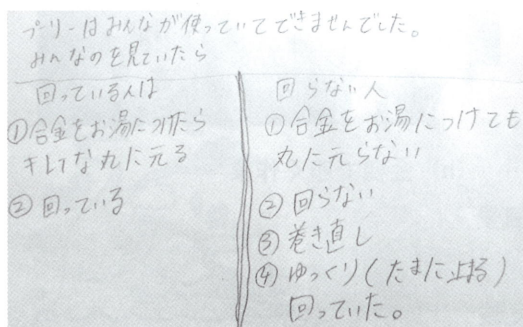 プーリーはみんなが使っていてできませんでした。
みんなのを見ていたら
回っている人は
①合金をお湯につけたら
キレイな丸に元る
②回っている
回らない人
①合金をお湯につけても
丸に元らない
②回らない
③巻き直し
④ゆっくり(たまに止まる)
回っていた。